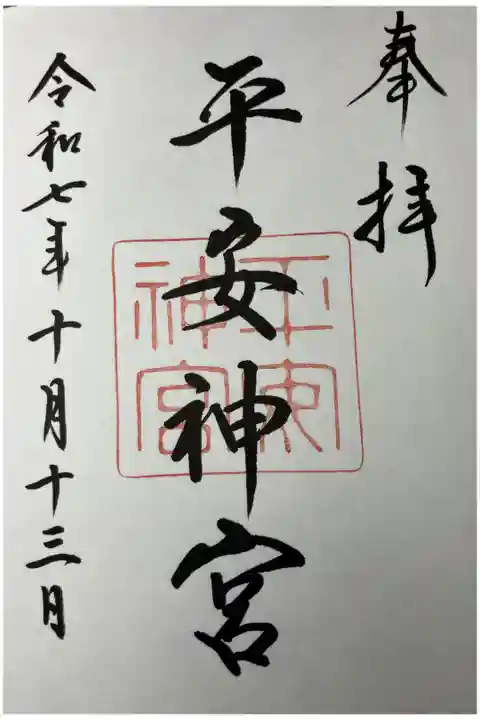 奉拝
平安神宮
平安
神宮
令和七年十月十三日